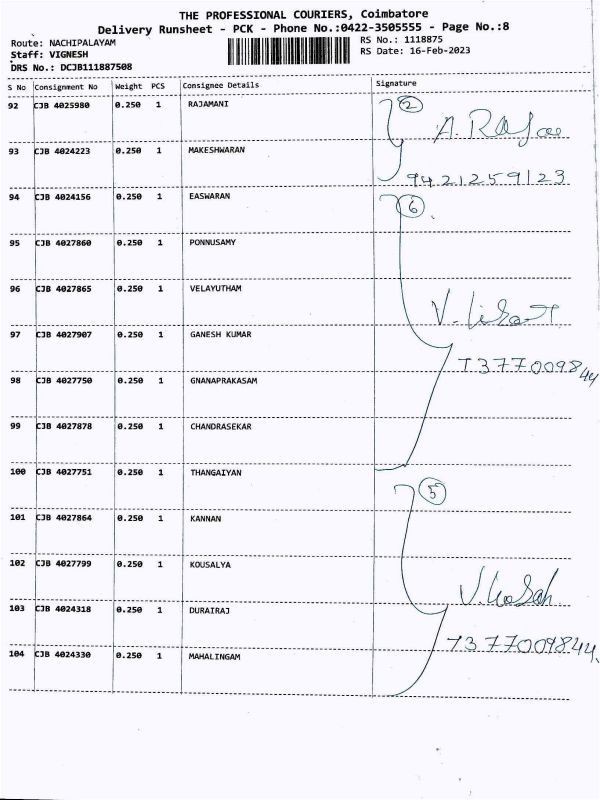 THE PROFESSIONAL COURIERS, Coimbatore
Delivery Runsheet - PCK - Phone No.:0422-3505555 - Page No.:8
Route: NACHIPALAYAM
RS No.: 1118875
Staff: VIGNESH
RS Date: 16-Feb-2023
DRS No.: DCJB111887508
S No Consignment No Weight PCS Consignee Details Signature
92 CJB 4025980 0.250 1 RAJAMANI 2
93 CJB 4024223 0.250 1 MAKESHWARAN
9421259123
94 CJB 4024156 0.250 1 EASWARAN 6
95 CJB 4027860 0.250 1 PONNUSAMY
96 CJB 4027865 0.250 1 VELAYUTHAM
97 CJB 4027907 0.250 1 GANESH KUMAR
7377009844
98 CJB 4027750 0.250 1 GNANAPRAKASAM
99 CJB 4027878 0.250 1 CHANDRASEKAR
100 CJB 4027751 0.250 1 THANGAIYAN 5
101 CJB 4027864 0.250 1 KANNAN
102 CJB 4027799 0.250 1 KOUSALYA
103 CJB 4024318 0.250 1 DURAIRAJ
7377009844
104 CJB 4024330 0.250 1 MAHALINGAM